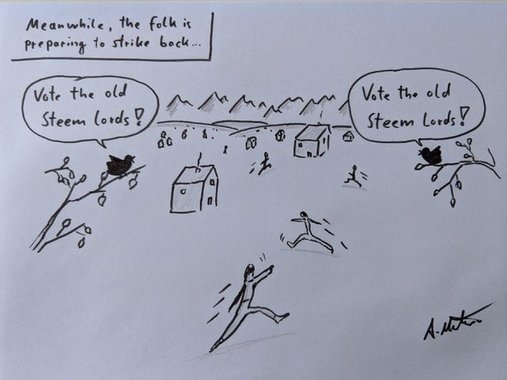 Meanwhile, the folk is
preparing to strike back...
Vote the old
Steem Lords!
Vote the old
Steem Lords!